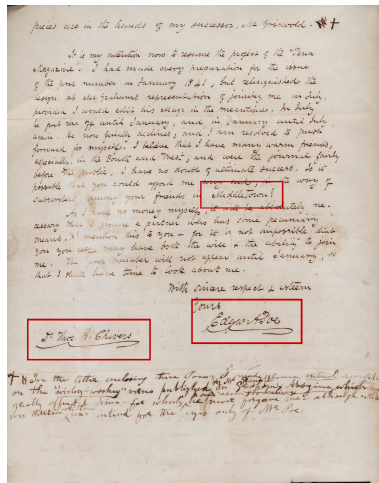 pieces are in the hands of my successor, Mr Griswold.
It is my intention now to resume the project of the "Penn
Magazine". I had made every preparation for the issue
of the first number in January 1841, but relinquished the
design at Mr Graham's representation of joining me in July,
provided I would edit his mag: in the meantime. In July
he put me off until January, and in January until July
again. He now finally declines, and I am resolved to push
forward for myself. I believe that I have many warm friends,
especially in the South and West, and were the journal fairly
before the public, I have no doubt of ultimate success. Is it
possible that you could afford me any aid, in the way of
subscribers among your friends in Middletown?
As I have no money myself, it will be absolutely ne-
cessary that I procure a partner who has some pecuniary
means. I mention this to you – for it is not impossible that
you yourself may have both the will & the ability to join
me. The first number will not appear until January, so
that I shall have time to look about me.
With sincere respect & esteem
Yours
Edgar A Poe
Dr Thos H. Chivers
In the letter enclosing these Poems
on the published in Graham's Magazine which
for which he never forgave me although
was intended for the eyes only of Mr Poe